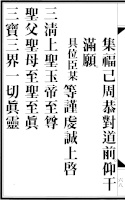 集福已周恭對道前仰干
滿願
具位臣某等謹虔誠上啓
三淸上聖玉帝至尊
聖父聖母至聖至眞
三寶三界一切眞靈